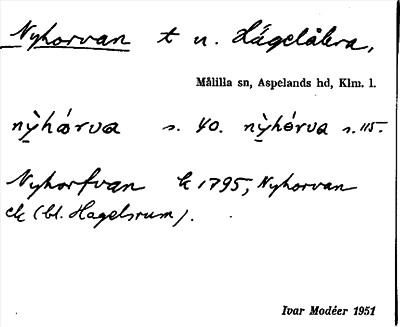 Nyhorvan t n. Hågelåkra,
Målilla sn, Aspelands hd, Klm. l.
nỳhǻrva s. 40. nỳhórva s. 115.
Nyhorfvan k 1795, Nyhorvan
ek (bl. Hagelsrum).
Ivar Modéer 1951